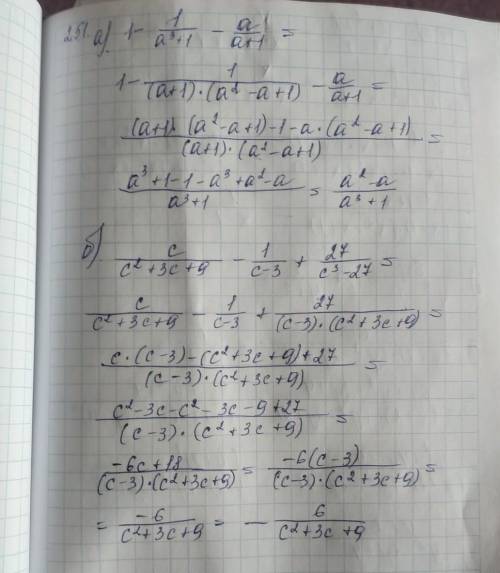 251. а) 1 - 1/(a³+1) - a/(a+1) =
1 - 1/((a+1)·(a²-a+1)) - a/(a+1) =
((a+1)·(a²-a+1)-1-a·(a²-a+1))/((a+1)·(a²-a+1)) =
(a³+1-1-a³+a²-a)/(a³+1) = (a²-a)/(a³+1)
б) c/(c²+3c+9) - 1/(c-3) + 27/(c³-27) =
c/(c²+3c+9) - 1/(c-3) + 27/((c-3)·(c²+3c+9)) =
(c·(c-3)-(c²+3c+9)+27)/((c-3)·(c²+3c+9)) =
(c²-3c-c²-3c-9+27)/((c-3)·(c²+3c+9)) =
(-6c+18)/((c-3)·(c²+3c+9)) = (-6(c-3))/((c-3)·(c²+3c+9)) =
= -6/(c²+3c+9) = - 6/(c²+3c+9)